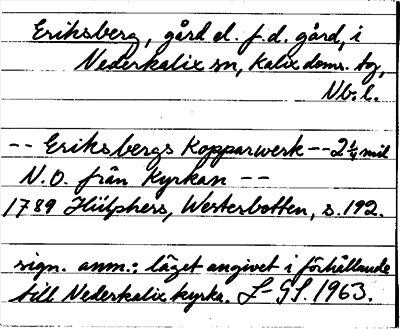 Eriksberg, gård el. f.d. gård, i
Nederkalix sn, Kalix doms. tg,
Nb. l.
-- Eriksbergs Kopparwerk -- 2 1/4 mil
N.O. från Kyrkan --
1789 Hülphers, Westerbotten, s. 192.
sign. anm.: läget angivet i förhållande
till Nederkalix kyrka. GS. 1963.